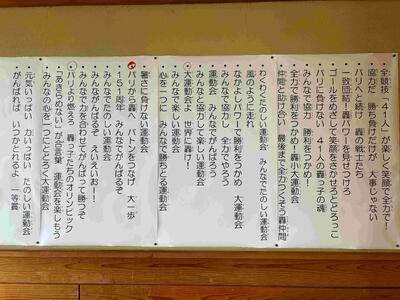 全競技「41人」が楽しく笑顔で全力で!
協力だ 勝ち負けだけが 大事じゃない
パリへと続け 轟の戦士たち
一致団結!轟パワーを見せつけろ
ゴールをめざして笑顔をさかせろとどろっこ
パリに負けない 41人の轟っ子の魂
みんなで協力 勝利をつかめ!
全力で勝利をつかめ 轟小大運動会
仲間と助け合い 最後まで全力つくそう轟仲間
わくわくたのしい運動会 みんなだたのしい運動会
風のように走れ
なかよしパワーで勝利をつかめ 大運動会
みんなで協力し 全力でやろう
みんなと協力して楽しい運動会
運動会 みんなでがんばろう運動会
大運動会よ 世界に轟け!
みんなで楽しい運動会
心を一つに みんなで勝ちとる運動会
暑さに負けない運動会
パリから轟へ バトンをつなげ 大一歩
151周年 みんなでがんばるぞ
みんながんばるぞ えいえいおー!
みんなで力を合わせてがんばって勝つぞ
みんなでたのしい運動会
パリより燃えろ 轟の41人のオリンピック
「あきらめない」が合言葉 運動会を楽しもう
みんなの心を一つにとどろく大運動会
元気いっぱい 力いっぱい たのしい運動会
がんばれば いつかとれるよ 一等賞